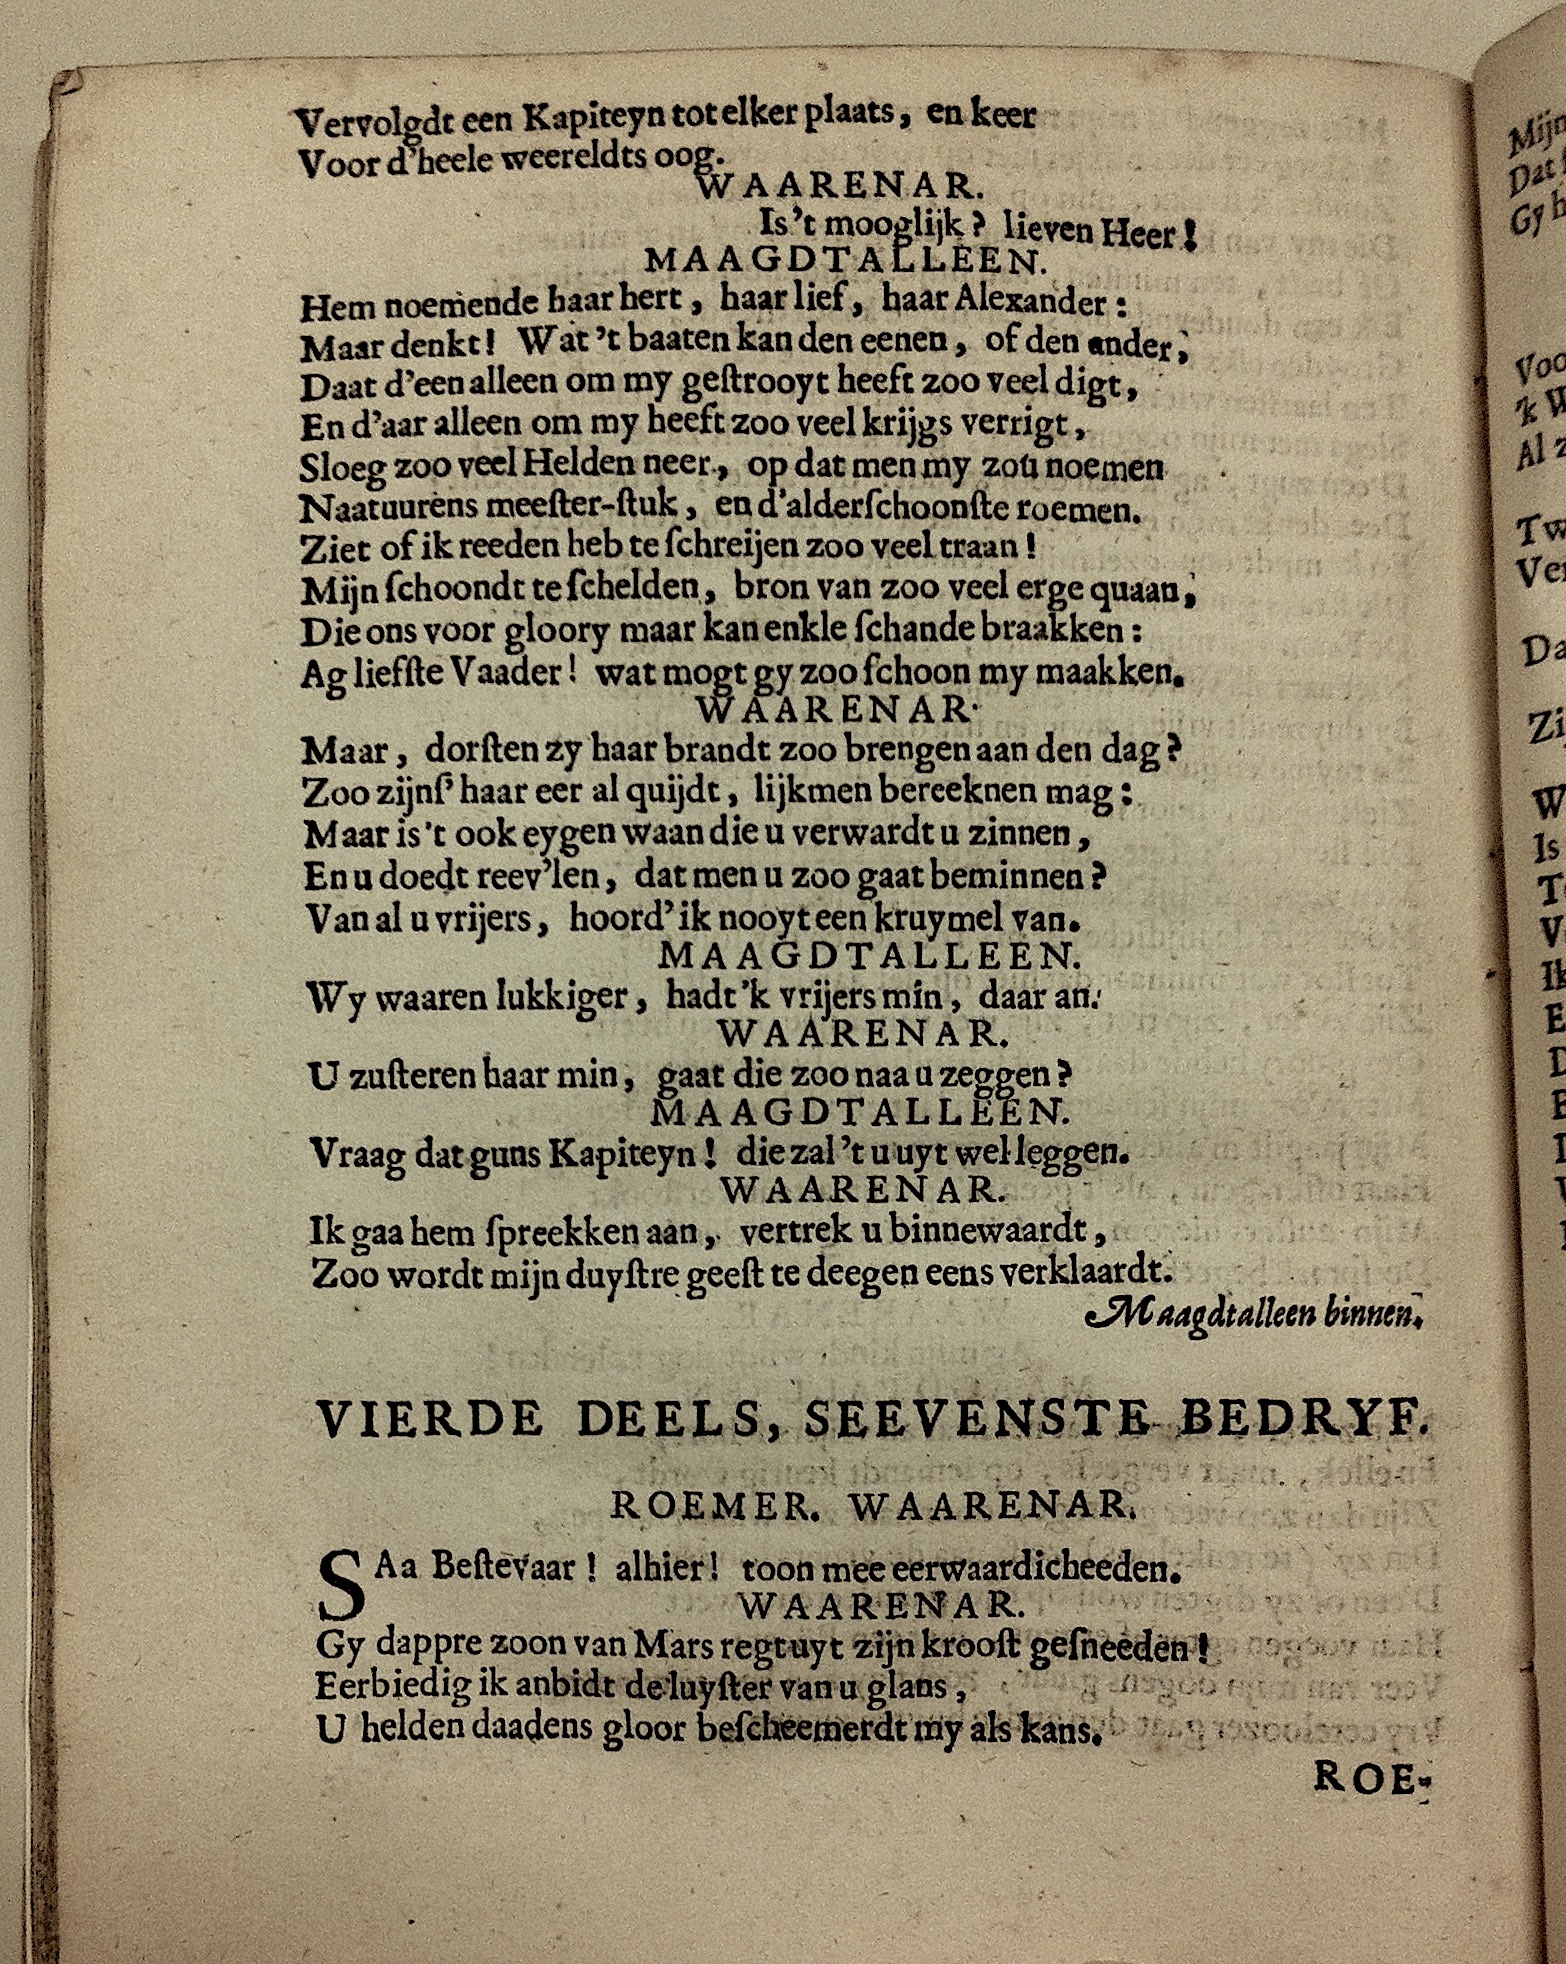 Vervolgdt een Kapiteyn tot elker plaats, en keer
Voor d'heele weereldts oog.
WAARENAR.
Is't mooglijk? lieven Heer!
MAAGDTALLEEN.
Hem noemende haar hert, haar lief, haar Alexander:
Maar denkt! Wat 't baaten kan den eenen, of den ander,
Daat d'een alleen om my geſtrooyt heeft zoo veel digt,
En d'aar alleen om my heeft zoo veel krijgs verrigt,
Sloeg zoo veel Helden neer, op dat men my zou noemen
Naatuurens meeſter-ſtuk, en d'alderſchoonſte roemen.
Ziet of ik reeden heb te ſchreijen zoo veel traan!
Mijn ſchoondt te ſchelden, bron van zoo veel erge quaan,
Die ons voor gloory maar kan enkle ſchande braakken:
Ag liefſte Vaader! wat mogt gy zoo ſchoon my maakken.
WAARENAR.
Maar, dorſten zy haar brandt zoo brengen aan den dag?
Zoo zijnſ' haar eer al quijdt, lijkmen bereeknen mag:
Maar is't ook eygen waan die u verwardt u zinnen,
En u doedt reev'len, dat men u zoo gaat beminnen?
Van al u vrijers, hoord' ik nooyt een kruymel van.
MAAGDTALLEEN.
Wy waaren lukkiger, hadt 'k vrijers min, daar an.
WAARENAR.
U zuſteren haar min, gaat die zoo naa u zeggen?
MAAGDTALLEEN.
Vraag dat guns Kapiteyn! die zal 't u uyt wel leggen.
WAARENAR.
Ik gaa hem ſpreekken aan, vertrek u binnewaardt,
Zoo wordt mijn duyſtre geeſt te deegen eens verklaardt.
Maagdtalleen binnen.
VIERDE DEELS, SEEVENSTE BEDRYF.
ROEMER. WAARENAR.
SAa Beſtevaar! alhier! toon mee eerwaardicheeden.
WAARENAR.
Gy dappre zoon van Mars regt uyt zijn krooſt geſneeden!
Eerbiedig ik anbidt de luyſter van u glans,
U helden daadens gloor beſcheemerdt my als kans.
ROE-
Mijn
Dat
Gy
Voo
'k W
Al z
Tw
Ver
Da
Zi
W
Is